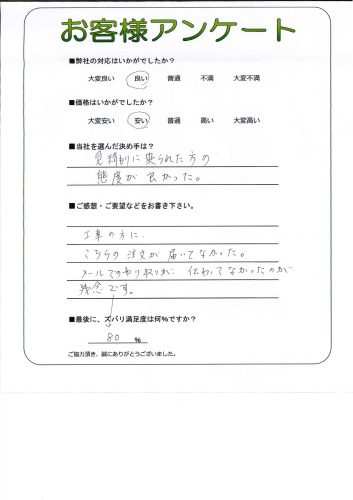 お客様アンケート
■弊社の対応はいかがでしたか？
大変良い 良い 普通 不満 大変不満
■価格はいかがでしたか？
大変安い 安い 普通 高い 大変高い
■当社を選んだ決め手は？
見積りに来られた方の
態度が良かった。
■ご感想・ご要望などをお書き下さい。
工事の方に
こちらの注文が届いてなかった。
メールでのやり取りが 伝わってなかったのが
残念です。
■最後に、ズバリ満足度は何%ですか？
80 %
ご協力頂き、誠にありがとうございました。